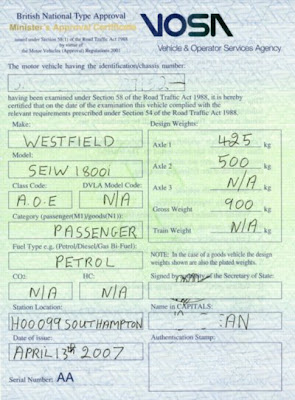 British National Type Approval
Minister's Approval Certificate
issued under Section 58(1) of the Road Traffic Act 1988
by virtue of
the Motor Vehicles (Approval) Regulations 2001
VOSA
Vehicle & Operator Services Agency
The motor vehicle having the identification/chassis number:
having been examined under Section 58 of the Road Traffic Act 1988, it is hereby
certified that on the date of the examination this vehicle complied with the
relevant requirements prescribed under Section 54 of the Road Traffic Act 1988.
Make:
WESTFIELD
Model:
SEIW 1800i
Class Code:
DVLA Model Code:
A.O.E
N/A
Category (passenger(M1)/goods(N1)):
PASSENGER
Fuel Type e.g, (Petrol/Diesel/Gas Bi-Fuel):
PETROL
CO2:
HC:
N/A
N/A
Station Location:
H00099 SOUTHAMPTON
Date of issue:
APRIL 13th 2007
Serial Number: AA
Design Weights:
Axle 1 425 kg
Axle 2 500 kg
Axle 3 N/A kg
Gross Weight 900 kg
Train Weight N/A kg
NOTE: In the case of a goods vehicle the design
weights shown are also the plated weights.
Signed by of the Secretary of State:
Name in CAPITALS:
AN
Authentication Stamp: